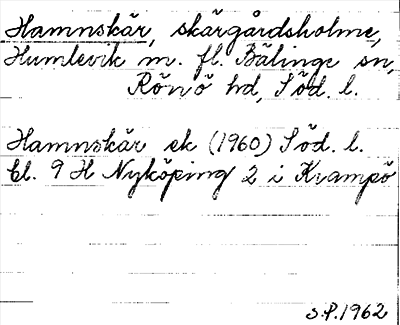 Hamnskär, skärgårdsholme,
Humlevik m. fl. Bälinge sn,
Rönö hd, Söd. l.
Hamnskär ek (1960) Söd. l.
bl. 9 H Nyköping 2 i Krampö
S.P. 1962